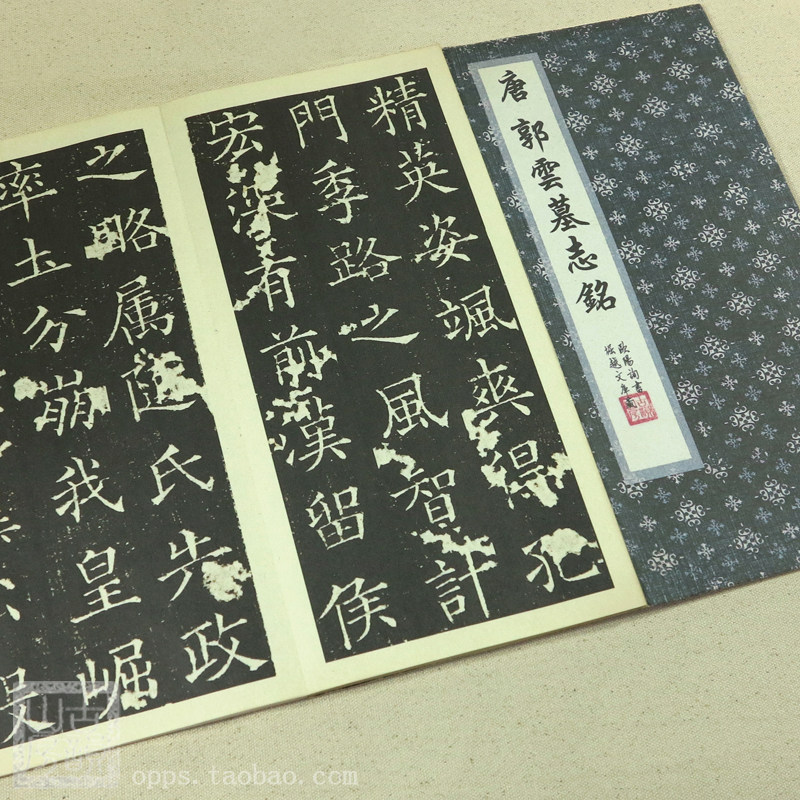 唐郭雲墓志銘
歐陽詢書
精英姿颯爽得孔
門季路之風智計
宏深有前漢留侯
之略属隨氏失政
率土分崩我皇崛
opps.taobao.com